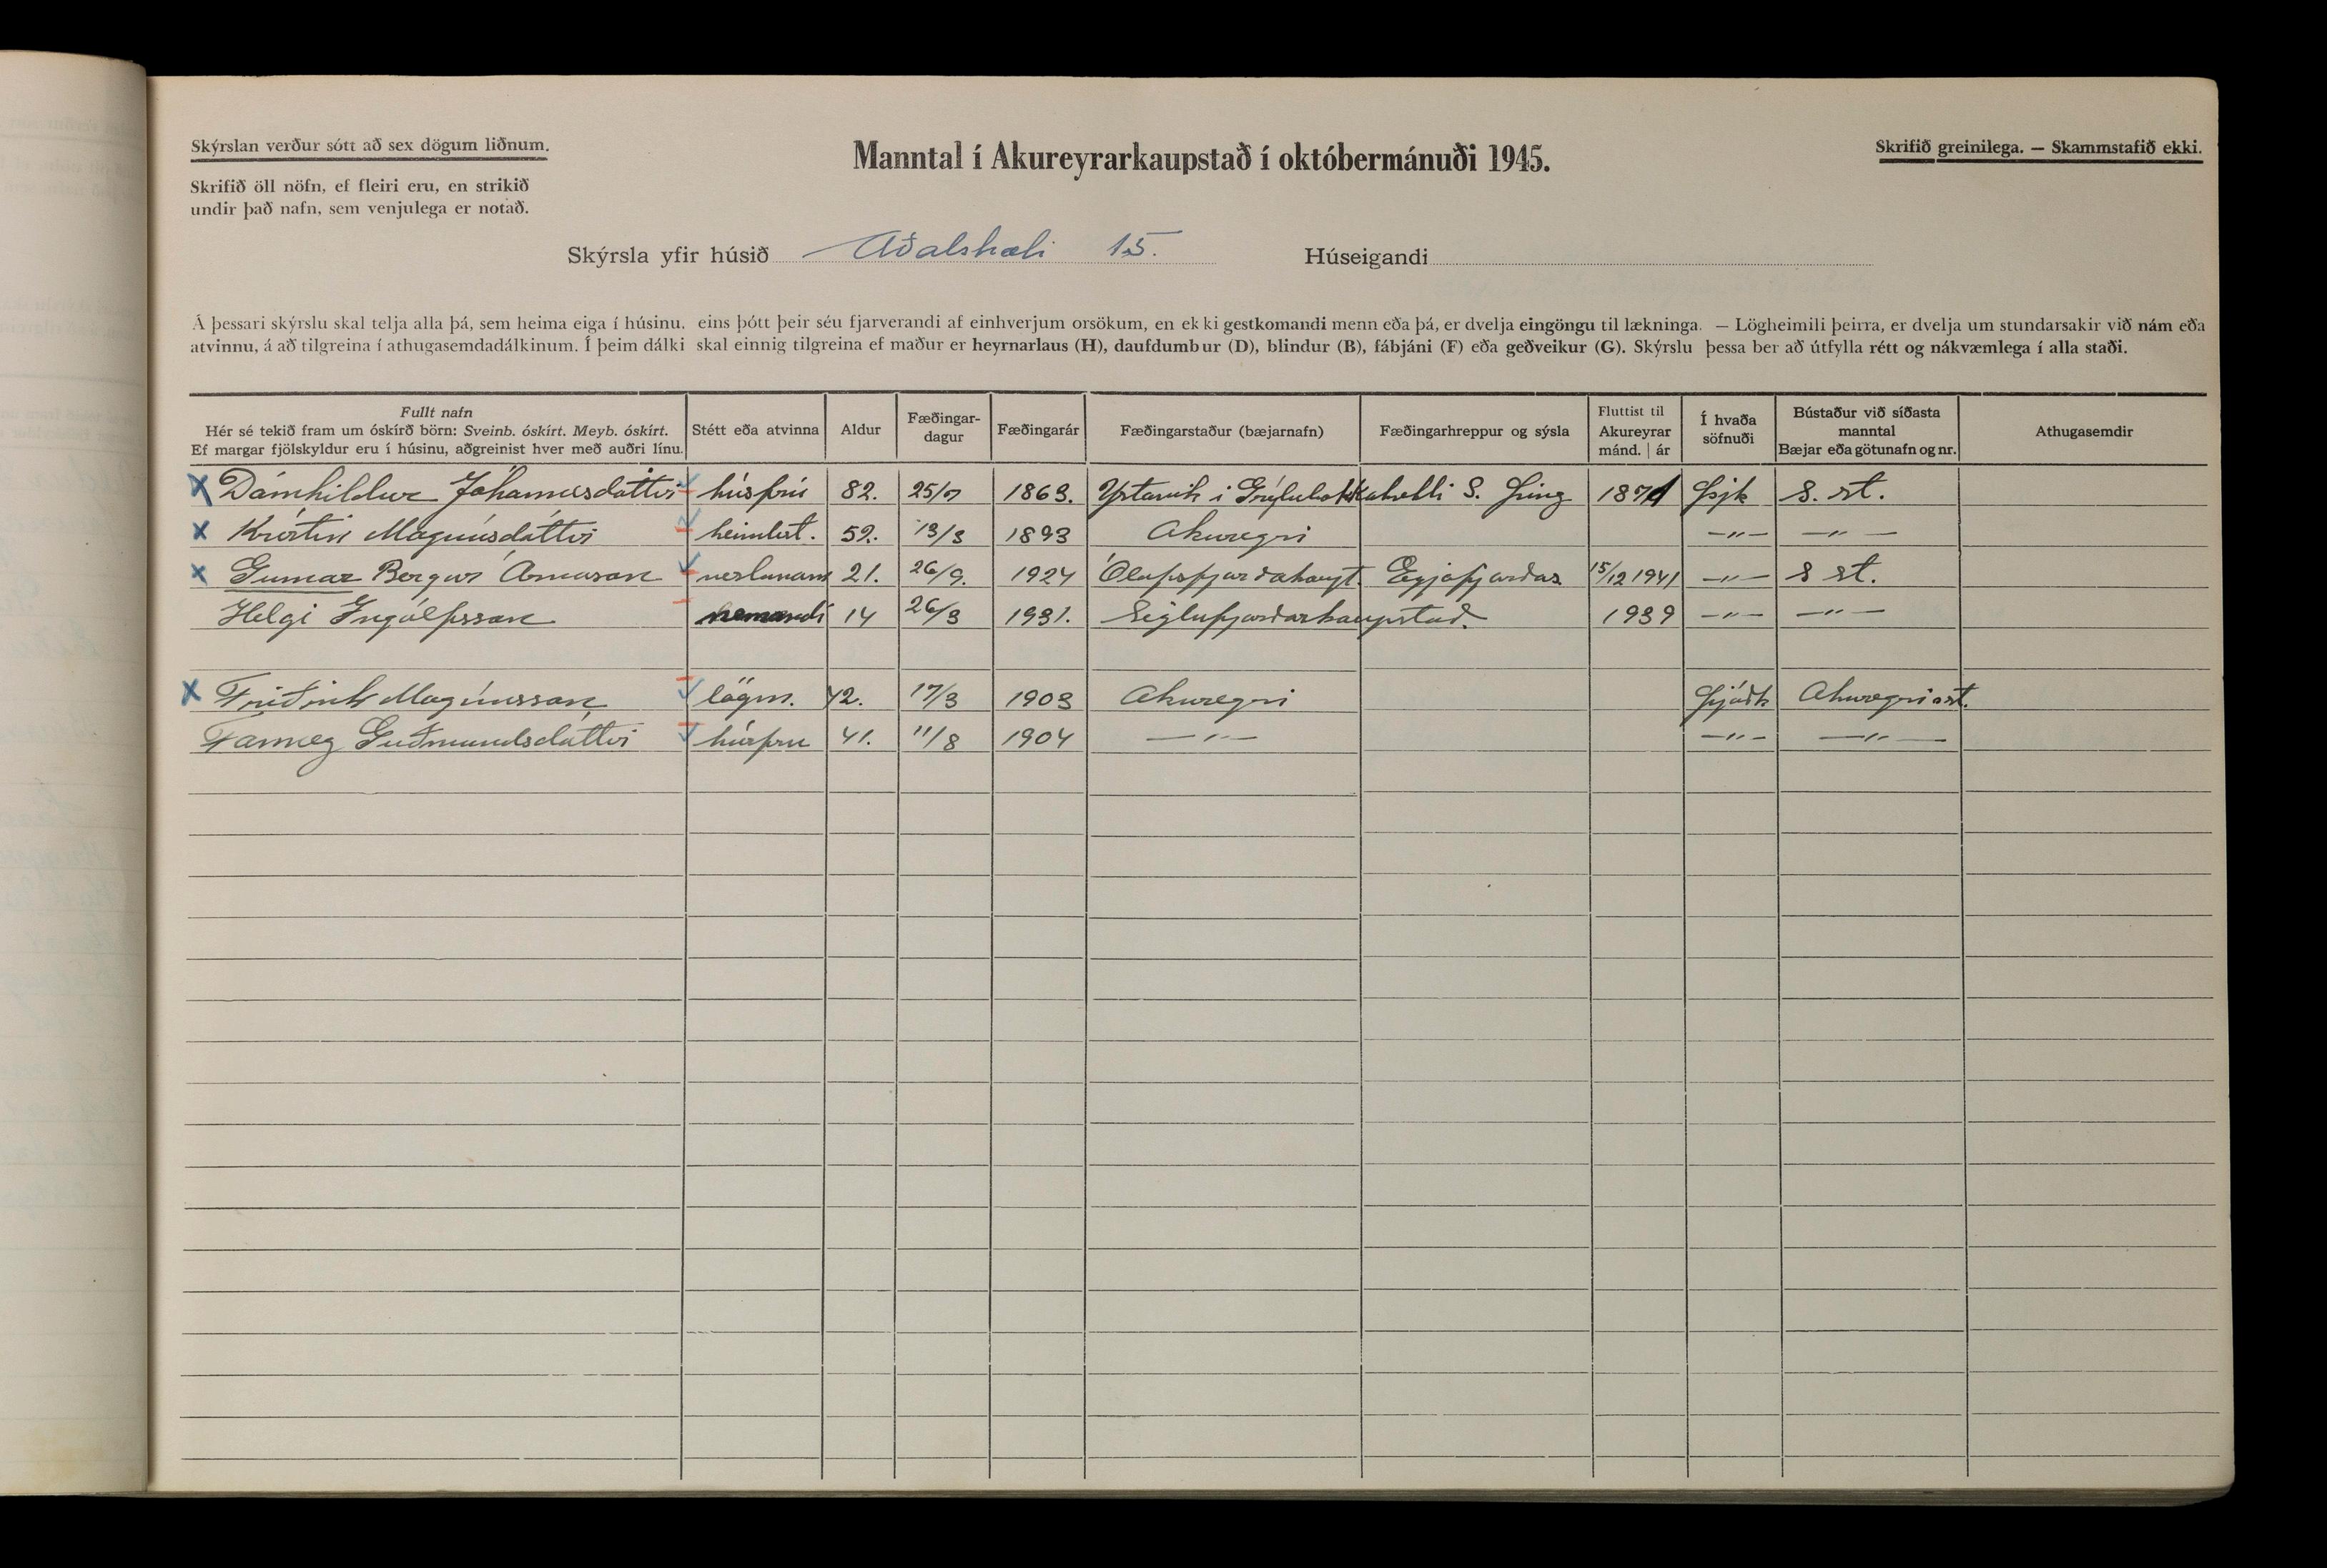 Skýrslan verður sótt að sex dögum liðnum.
Manntal í Akureyrarkaupstað í októbermánuði 1945.
Skrifið greinilega. — Skammstafið ekki.
Skrifið öll nöfn, ef fleiri eru, en strikið
undir það nafn, sem venjulega er notað.
Skýrsla yfir húsið Aðalstræti 15. Húseigandi
Á þessari skýrslu skal telja alla þá, sem heima eiga í húsinu, eins þótt þeir séu fjarverandi af einhverjum orsökum, en ekki gestkomandi menn eða þá, er dvelja eingöngu til lækninga. — Lögheimili þeirra, er dvelja um stundarsakir við nám eða
atvinnu, á að tilgreina í athugasemdadálkinum. Í þeim dálki skal einnig tilgreina ef maður er heyrnarlaus (H), daufdumbur (D), blindur (B), fábjáni (F) eða geðveikur (G). Skýrslu þessa ber að útfylla rétt og nákvæmlega í alla staði.
Fullt nafn
Hér sé tekið fram um óskírð börn: Sveinb. óskírt. Meyb. óskírt.
Ef margar fjölskyldur eru í húsinu, aðgreinist hver með auðri línu.
Stétt eða atvinna
Aldur
Fæðingar-
dagur
Fæðingarár
Fæðingarstaður (bæjarnafn)
Fæðingarhreppur og sýsla
Fluttist til
Akureyrar
mánd. | ár
Í hvaða
söfnuði
Bústaður við síðasta
manntal
Bæjar eða götunafn og nr.
Athugasemdir
X Dómhildur Jóhannesdóttir húsfrú 82. 25/7 1863. Ystavík i S. Þing 1871 Þjk S. st.
X Kristín Magnúsdóttir heimlist. 52. 13/3 1893 Akureyri —"— —"—
X Gunnar Bergur Árnason verslunarm 21. 26/9. 1924 Ólafsfjarðakaupt. Eyjafjarðar 15/12 1941 —"— S st.
Helgi Ingólfsson nemandi 14 26/3 1931. Siglufjarðarkaupstað. 1939 —"— —"—
X Friðrik Magnússon lögm. 42. 17/3 1903 Akureyri Þjóðk Akureyri ast.
Fanney Guðmundsdóttir húsfru 41. 11/8 1904 —"— —"— —"—